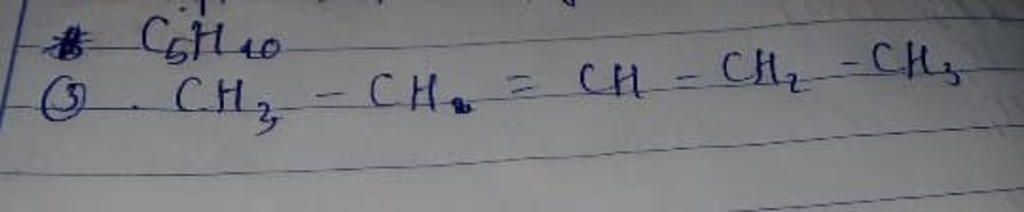 C5H10
③ . CH3 - CH = CH - CH2 - CH3